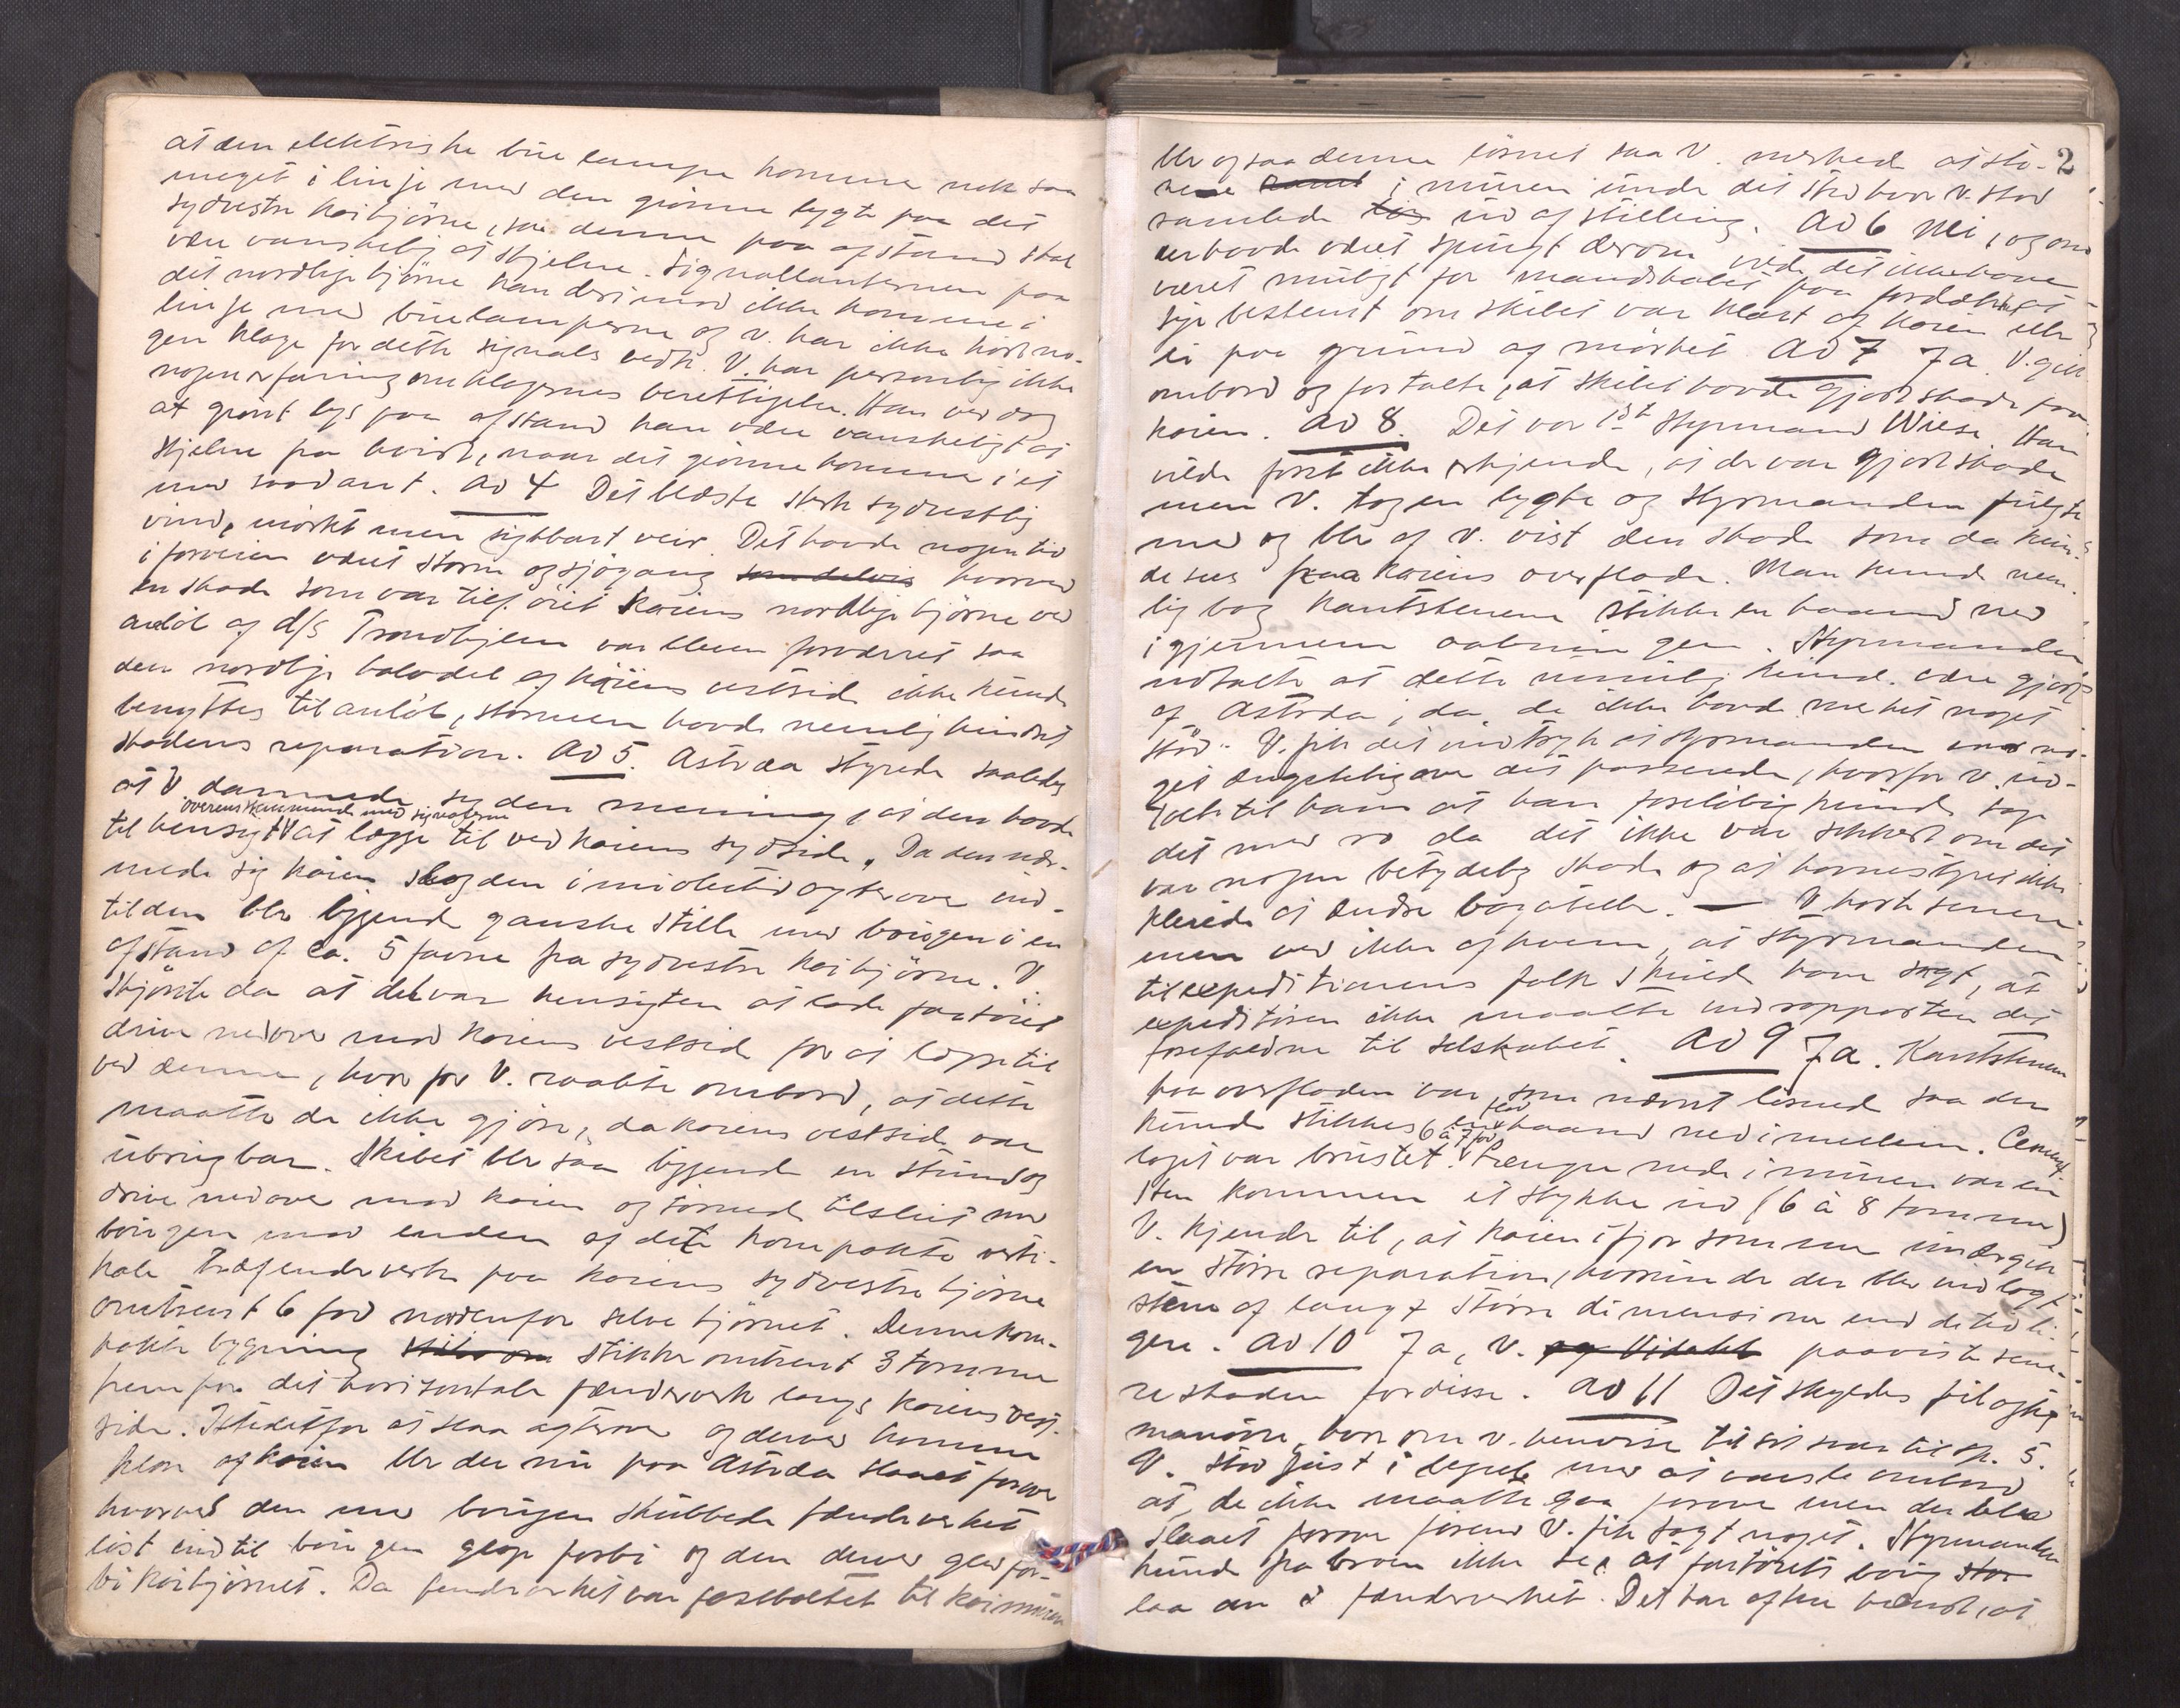 at den elektriske buelampe komme nok saa
meget i linje med den grönne lygte paa det
sydvestre kaihjörne, saa denne paa afstand skal
være vanskelig at skjelne. Signallanternen paa
det nordlige hjörne kan derimod ikke komme i
linje med buelamperne og V. har ikke hört no-
gen klage for dette signals vedk. V. har personlig ikke
nogen erfaring om klagernes berettigelse. Han ved dog
at grönt lys paa afstand kan være vanskeligt at
skjelne fra hvidt, naar det grönne komme i et
med saadant. Ad 4 Det blæste sterk sydvestlig
vind, mörkt men sigtbart veir. Det havde nogen tid
i forveien været storm og sjögang som delvis hvorved
en skade som var tilföiet kaiens nordlige hjörne ved
anlöb af d/s Trondhjem var bleven forværret saa
den nordlige halvdel af kaiens vestside ikke kunde
benyttes til anlöb, stormen havde nemlig hindret
skadens reparation. Ad 5. Astræa styrede saaledes
at V. dannede sig den mening, at den havde
overensstemmende med signalerne
til hensigt V at lægge til ved kaiens sydside. Da den nær-
mede sig kaien slog den imidlertid agterover ind-
til den blev liggende ganske stille med bougen i en
afstand af ca. 5 favne fra sydvestre kaihjörne. V.
skjönte da at det var hensigten at lade fartöiet
drive nedover mod kaiens vestside for at lægge til
ved denne, hvorfor V. raabte ombord, at dette
maatte de ikke gjöre, da kaiens vestside var
ubrugbar. Skibet blev saa liggende en stund og
drive nedover mod kaien og törnede tilslut med
bougen mod enden af det kompakte verti-
kale træfenderverk paa kaiens sydvestre hjörne
omtrent 6 fod nordenfor selve hjörnet. Denne kom-
pakte bygning stikker omtrent 3 tomme
frem for det horisontale fenderverk langs kaiens vest-
side. Istedetfor at slaa agterover og derved komme
klar af kaien blev der nu paa Astræa slaaet forover
hvorved den med bougen skubbede fenderverket
löst indtil bougen glap forbi og den derved gled for-
bi kaihjörnet. Da fenderverket var fastboltet til kaimuren
2
blev ogsaa denne lösnet saa V. merkede at ste-
nene ramt i muren under det sted hvor V. stod
ramlede ud af stilling. Ad 6 Nei, og om
der havde været spurgt derom vilde det ikke have
været muligt for mandskabet paa fordækket at
sige bestemt om skibet var klart af kaien eller
ei paa grund af mörket. Ad 7 Ja. V. gik
ombord og fortalte, at skibet havde gjort skade paa
kaien. Ad 8. Det var 1st Styrmand Wiese. Han
vilde först ikke erkjende, at der var gjort skade
men V. tog en lygte og styrmanden fulgte
med og blev af V. vist den skade som da kun-
de sees paa kaiens overflade. Man kunde nem-
lig bag kantstenene stikke en haand ned
igjennem aabningen. Styrmanden
udtalte at dette umulig kunde være gjort
af Astræa, da de ikke havde merket noget
stöd. V. fik det indtryk at styrmanden var no-
get ængstelig over det passerede, hvorfor V. ud-
talte til ham at han foreløbig kunde tage
det med ro da det ikke var sikkert om det
var nogen betydelig skade og at havnestyret ikke
pleiede at ændse bagateller. — V. hörte senere
men ved ikke af hvem, at styrmanden
til expeditionens folk skulde have sagt, at
expeditören ikke maatte indrapportere det
forefaldne til selskabet. Ad 9 Ja. Kantstenen
paa overfladen var som nævnt lösned saa der
kunde stikkes en haand ned imellem. Cement-
6 à 7 fod
laget var brustet. V Længer nede i muren var en
sten kommen et stykke ud (6 à 8 tomme)
V. kjender til, at kaien ifjor sommer undergik
en större reparation, hvorunder der blev indlagt
stene af langt större dimensioner end de tidli-
gere. Ad 10 Ja, V. paaviste sene-
re skaden for disse. Ad 11 Det skyldes feilagtig
manövre, hvorom V. henviser til sit svar til sp. 5.
V. stod just i begreb med at varsle ombord
at, de ikke maatte gaa forover men der blev
slaaet forover förend V. fik sagt noget. Styrmanden
kunde fra broen ikke se, at fartöiets boug stor
laa an i fenderverket. Det har ofte hændt, at